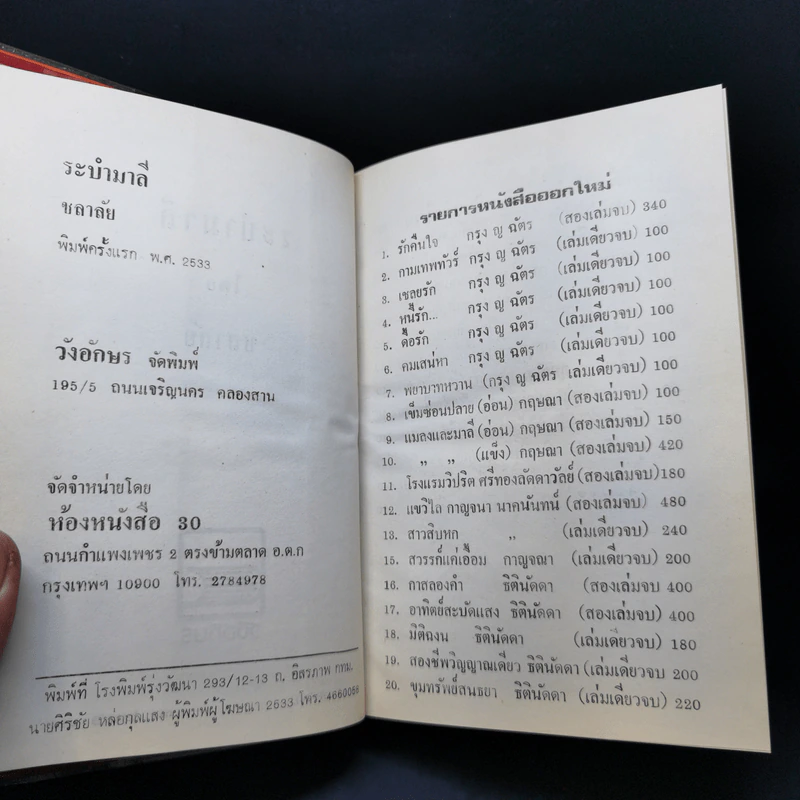 ระบำมาลี
ชลาลัย
พิมพ์ครั้งแรก พ.ศ. 2533
วังอักษร จัดพิมพ์
195/5 ถนนเจริญนคร คลองสาน
จัดจำหน่ายโดย
ห้องหนังสือ 30
ถนนกำแพงเพชร 2 ตรงข้ามตลาด อ.ต.ก
กรุงเทพฯ 10900 โทร. 2784978
พิมพ์ที่ โรงพิมพ์รุ่งวัฒนา 293/12-13 ถ. อิสรภาพ กทม.
นายศิริชัย หล่อกุลแสง ผู้พิมพ์ผู้โฆษณา 2533 โทร. 4660056
รายการหนังสือออกใหม่
1. รักคืนใจ กรุง ญ ฉัตร (สองเล่มจบ) 340
2. กามเทพทัวร์ กรุง ญ ฉัตร (เล่มเดียวจบ) 100
3. เชลยรัก กรุง ญ ฉัตร (เล่มเดียวจบ) 100
4. หนี้รัก... กรุง ญ ฉัตร (เล่มเดียวจบ) 100
5. ดื้อรัก กรุง ญ ฉัตร (เล่มเดียวจบ) 100
6. คมเสน่หา กรุง ญ ฉัตร (เล่มเดียวจบ) 100
7. พยาบาทหวาน (กรุง ญ ฉัตร เล่มเดียวจบ) 100
8. เข็มซ่อนปลาย (อ่อน) กฤษณา (สองเล่มจบ) 100
9. แมลงและมาลี (อ่อน) กฤษณา (สองเล่มจบ) 150
10. ,, ,, (แข็ง) กฤษณา (สองเล่มจบ) 420
11. โรงแรมวิปริต ศรีทองลัดดาวัลย์ (สองเล่มจบ) 180
12. แขวิไล กาญจนา นาคนันทน์ (สองเล่มจบ) 480
13. สาวสิบหก ,, (เล่มเดียวจบ) 240
15. สวรรก์แค่เอื้อม กาญจณา (เล่มเดียวจบ) 200
16. กาสลองคำ ธิตินัดดา (สองเล่มจบ 400
17. อาทิตย์สะบัดแสง ธิตินัดดา (สองเล่มจบ) 400
18. มิติฉงน ธิตินัดดา (เล่มเดียวจบ) 180
19. สองชีพวิญญาณเดียว ธิตินัดดา (เล่มเดียวจบ 200
20. ขุมทรัพย์สนธยา ธิตินัดดา (เล่มเดียวจบ) 220